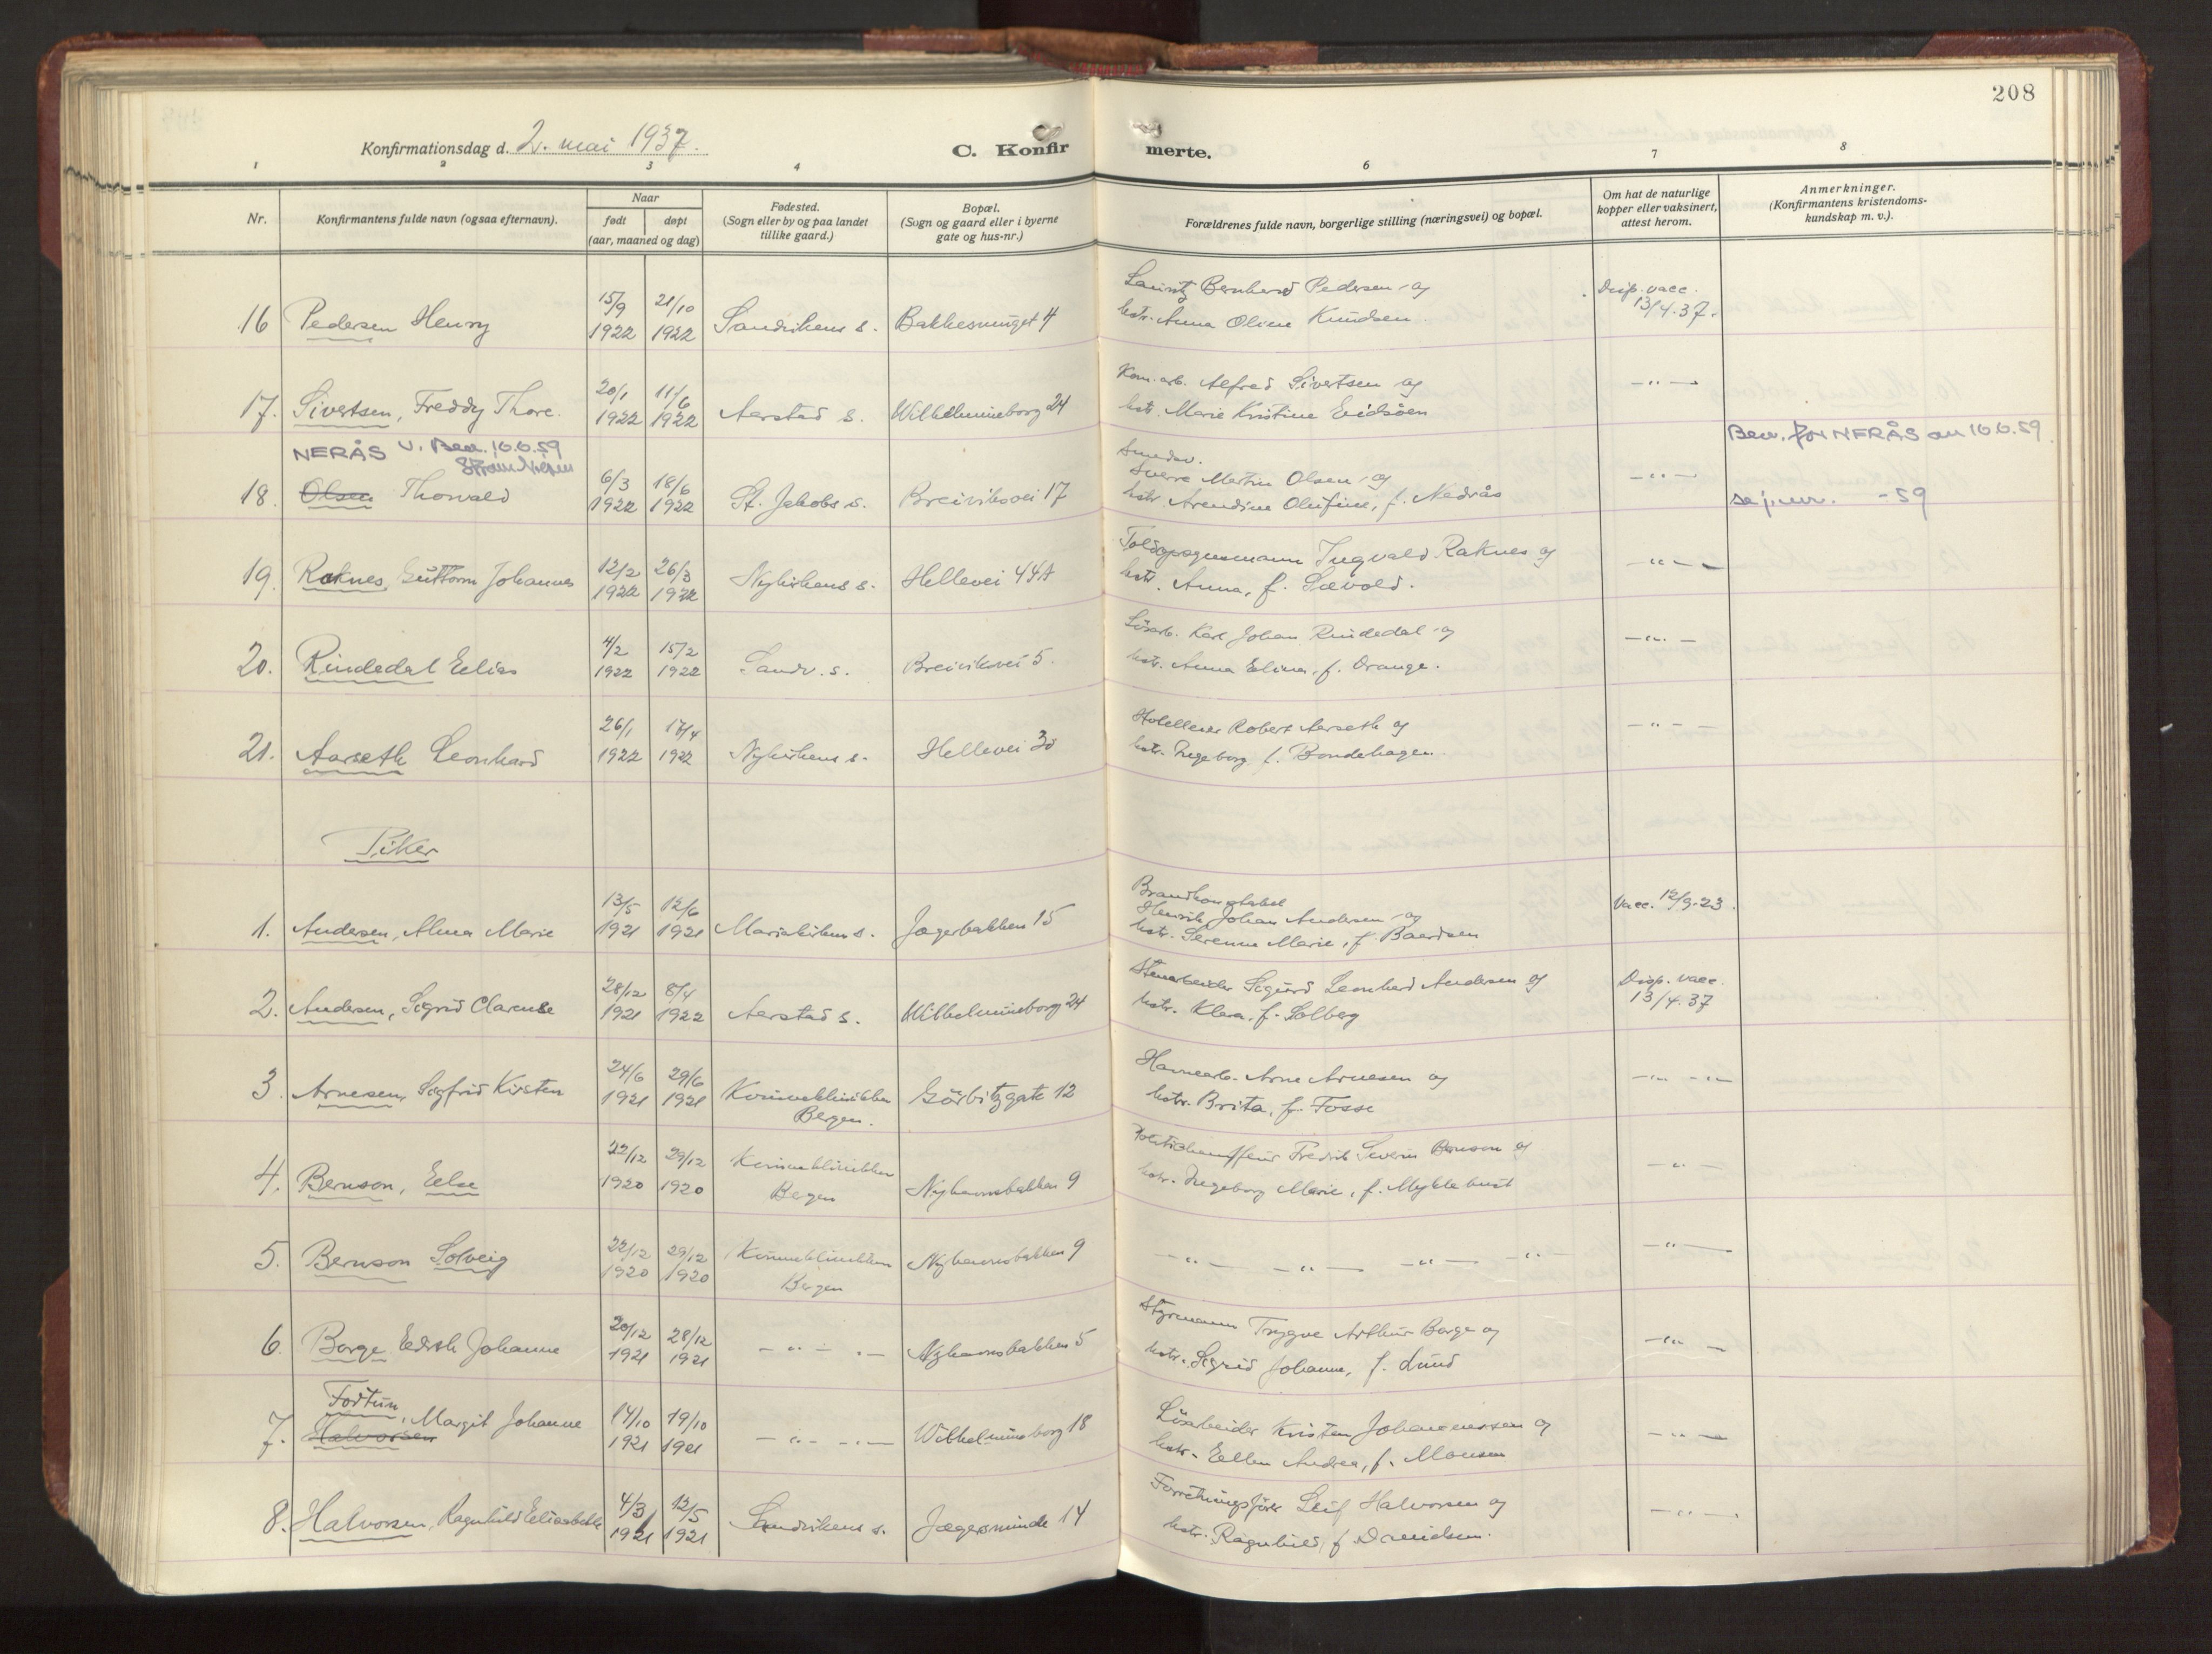 208
Konfirmationsdag d. 2. mai 1937.
C. Konfirmerte.
1 2 3 4 6 7 8
Nr.
Konfirmantens fulde navn (ogsaa efternavn).
Naar
født døpt
(aar, maaned og dag)
Fødested.
(Sogn eller by og paa landet
tillike gaard.)
Bopæl.
(Sogn og gaard eller i byerne
gate og hus-nr.)
Forældrenes fulde navn, borgerlige stilling (næringsvei) og bopæl.
Om hat de naturlige
kopper eller vaksinert,
attest herom.
Anmerkninger.
(Konfirmantens kristendoms-
kundskap m. v.).
16 Pedersen Henry 15/9 1922 21/10 1922 Sandvikens s. Bakkesmuget 4
Lauritz Bernhard Pedersen og
hstr. Anna Oline Knudsen
Disp. vacc.
13/4.37.
17. Sivertsen, Freddy Thore. 20/1 1922 11/6 1922 Aarstad s. Wilhelmineborg 24
Kom. arb. Alfred Sivertsen og
hstr. Marie Kristine Eidsöen
—"—
NERÅS v. Bev. 10.6.59
Bev. for NERÅS av 10.6.59
18. Olsen Thorvald 6/3 1922 18/6 1922 St. Jakobs s. Breiviksvei 17
Smedsv.
Sverre Martin Olsen og
hstr. Arendine Olufine, f. Nedrås
—"—
-59
19. Raknes, Guttorm Johannes 12/2 1922 26/3 1922 Nykirkens s. Hellevei 44A
Toldopsynsmann Ingvald Raknes og
hstr. Anna, f. Sævold.
—"—
20. Rindedal Elias 4/2 1922 15/2 1922 Sandv. s. Breiviksvei 5.
Lösarb. Karl Johan Rindedal og
hstr. Anna Elina, f. Orange.
—"—
21. Aarseth Leonhard 26/1 1922 17/4 1922 Nykirkens s. Hellevei 30
Robert Aarseth og
hstr. Ingeborg f. Bondehagen
—"—
Piker
1. Andersen, Alma Marie 13/5 1921 12/6 1921 Mariakirkens s. Jægerbakken 15
Brandkonstabel
Henrik Johan Andersen og
hstr. Serenne Marie, f. Baardsen
Vacc. 12/9.23.
2. Andersen, Sigrid Clarense 28/12 1921 8/4 1922 Aarstad s. Wilhelmineborg 24
Stenarbeider Sigurd Leonhard Andersen og
hstr. Klara, f. Solberg
Disp. vacc.
13/4.37
3. Arnesen, Sigfrid Kirsten 24/6 1921 29/6 1921 Kvinneklinikken Bergen. Görbitzgate 12
Havnearb. Arne Arnesen og
hstr. Brita, f. Fosse
—"— —"—
4. Bernson, Else 22/12 1920 29/12 1920 Kvinneklinikken Bergen Nyhavnsbakken 9
Politichauffeur Fredrik Severin Bernson og
hstr. Ingeborg Marie, f. Myklebust
—"—
5. Bernson Solveig 22/12 1920 29/12 1920 Kvinneklinikken Bergen Nyhavnsbakken 9
—"— —"— —"— —"—
—"—
6. Borge Edith Johanne 20/12 1921 28/12 1921 —"— —"— Nyhavnsbakken 5
Styrmann Trygve Arthur Borge og
hstr. Sigrid Johanne, f. Lund
—"—
Fortun
7. Halvorsen, Margit Johanne 14/10 1921 19/10 1921 —"— —"— Wilhelmineborg 18
Lösarbeider Kristen Johannessen og
hstr. Ellen Andrea, f. Monsen
—"—
8. Halvorsen, Ragnhild Elisabeth 4/3 1921 12/5 1921 Sandvikens s. Jægersminde 14
Forretningsförer Leif Halvorsen og
hstr. Ragnhild f. Davidsen.
—"—